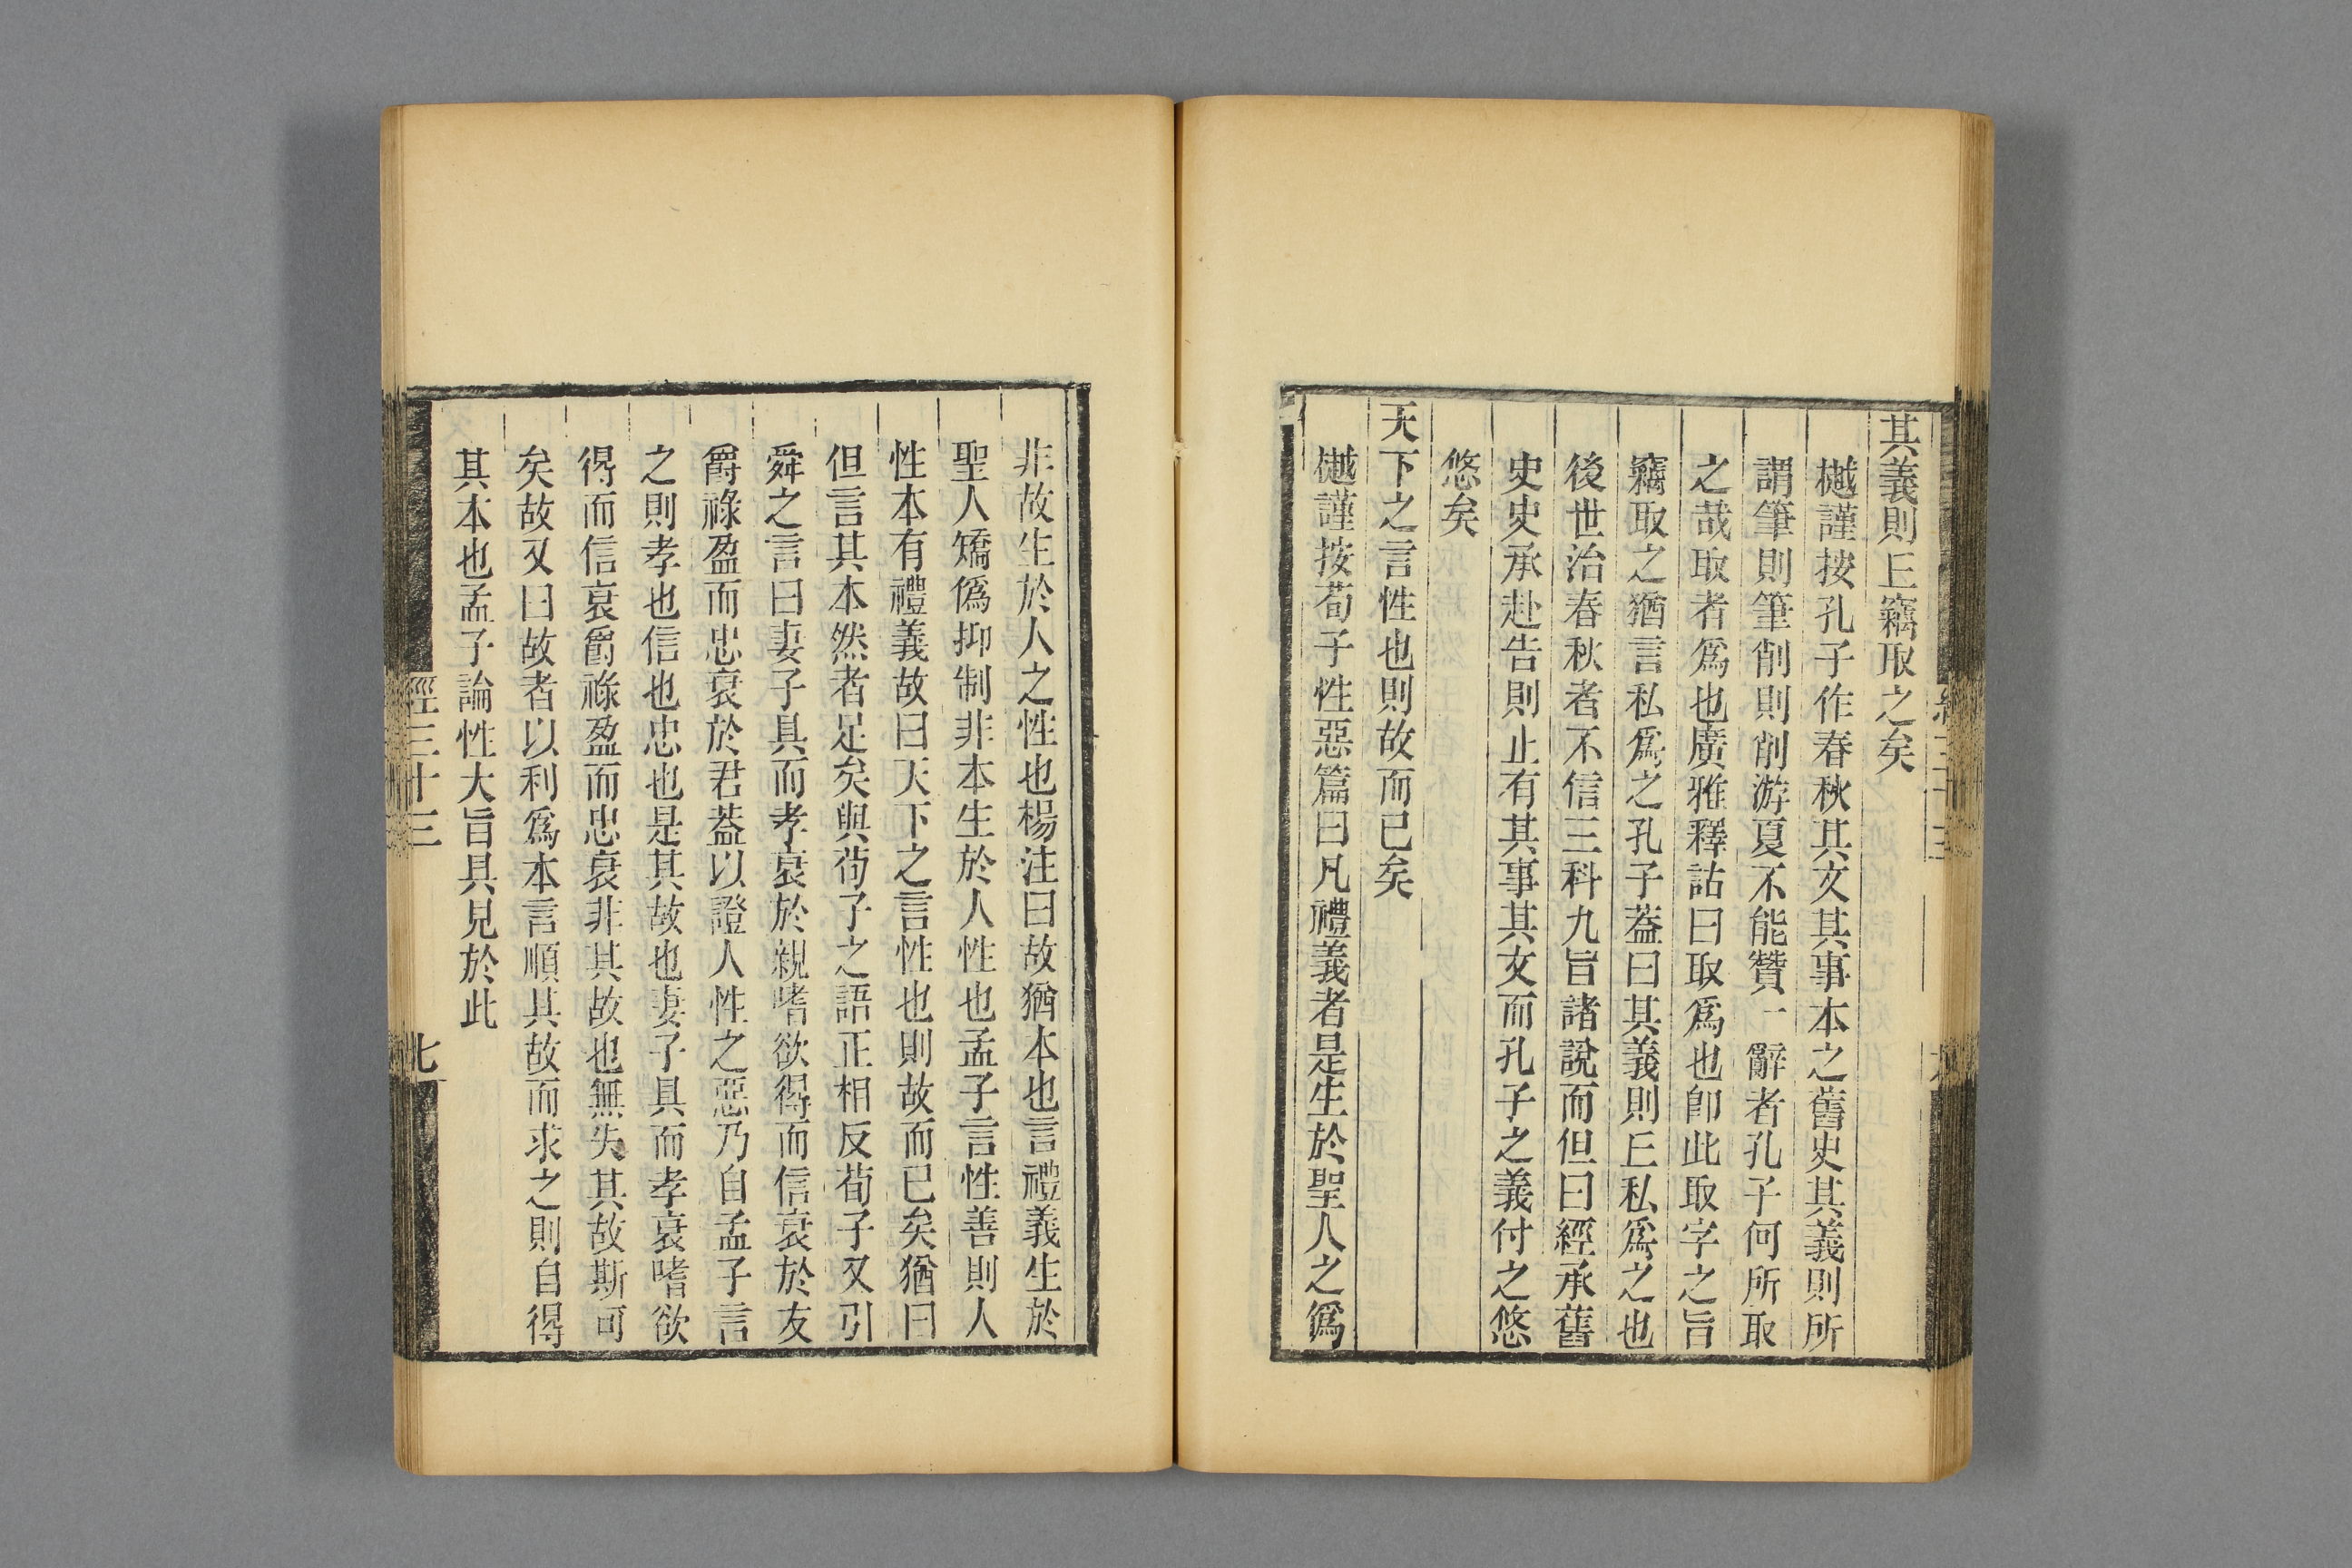 其義則丘竊取之矣
樾謹按孔子作春秋其文其事本之舊史其義則所
謂筆則筆削則削游夏不能贊一辭者孔子何所取
之哉取者爲也廣雅釋詁曰取爲也卽此取字之旨
竊取之猶言私爲之孔子葢曰其義則丘私爲之也
後世治春秋者不信三科九旨諸說而但曰經承舊
史史承赴告則止有其事其文而孔子之義付之悠
悠矣
天下之言性也則故而已矣
樾謹按荀子性惡篇曰凡禮義者是生於聖人之僞
非故生於人之性也楊注曰故猶本也言禮義生於
聖人矯僞抑制非本生於人性也孟子言性善則人
性本有禮義故曰天下之言性也則故而已矣猶曰
但言其本然者足矣與荀子之語正相反荀子又引
舜之言曰妻子具而孝衰於親嗜欲得而信衰於友
爵祿盈而忠衰於君葢以證人性之惡乃自孟子言
之則孝也信也忠也是其故也妻子具而孝衰嗜欲
得而信衰爵祿盈而忠衰非其故也無失其故斯可
矣故又曰故者以利爲本言順其故而求之則自得
其本也孟子論性大旨具見於此
經三十三
七